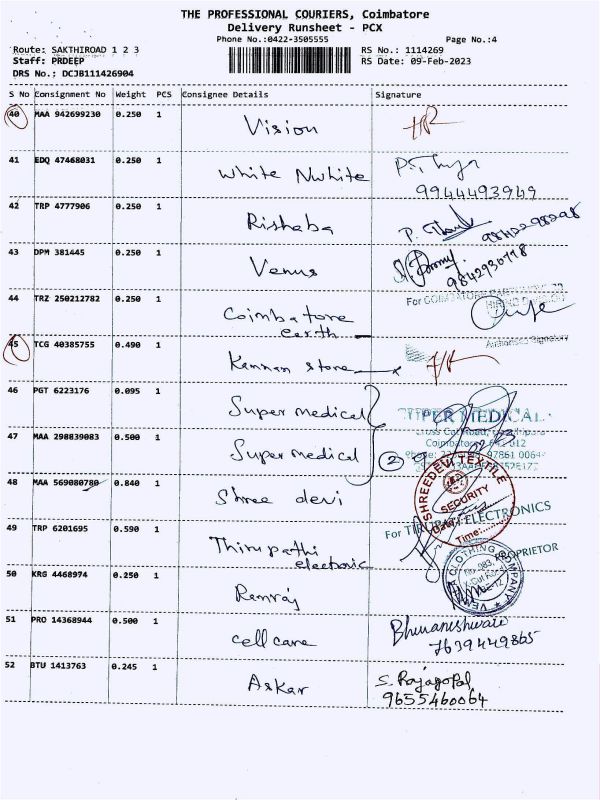 THE PROFESSIONAL COURIERS, Coimbatore
Delivery Runsheet - PCX
Phone No.:0422-3505555
Page No.:4
Route: SAKTHIROAD 1 2 3
RS No.: 1114269
Staff: PRDEEP
RS Date: 09-Feb-2023
DRS No.: DCJB111426904
S No Consignment No Weight PCS Consignee Details Signature
40 MAA 942699230 0.250 1 Vision
41 EDQ 47468031 0.250 1 White Nwhite
9944493949
42 TRP 4777906 0.250 1 Rishaba P.
43 DPM 381445 0.250 1 Venus
9842930718
44 TRZ 250212782 0.250 1 Coimbatore
earth
For
Authorised Signatory
45 TCG 40385755 0.490 1 Kannan store
46 PGT 6223176 0.095 1 Super medical
SUPER MEDICAL
47 MAA 298839083 0.500 1 Super medical 2
48 MAA 569080780 0.840 1 Shree devi
SHREEDEVI TEXTILE
SECURITY
Date:
Time:
49 TRP 6201695 0.590 1 Thirupathi
electronic
For TIRUPATI ELECTRONICS
PROPRIETOR
50 KRG 4468974 0.250 1 Ramraj
CLOTHING COMPANY
51 PRO 14368944 0.500 1 cell care Bhuvaneshwari
7639449865
52 BTU 1413763 0.245 1 Askar S. Rajagopal
9655460064